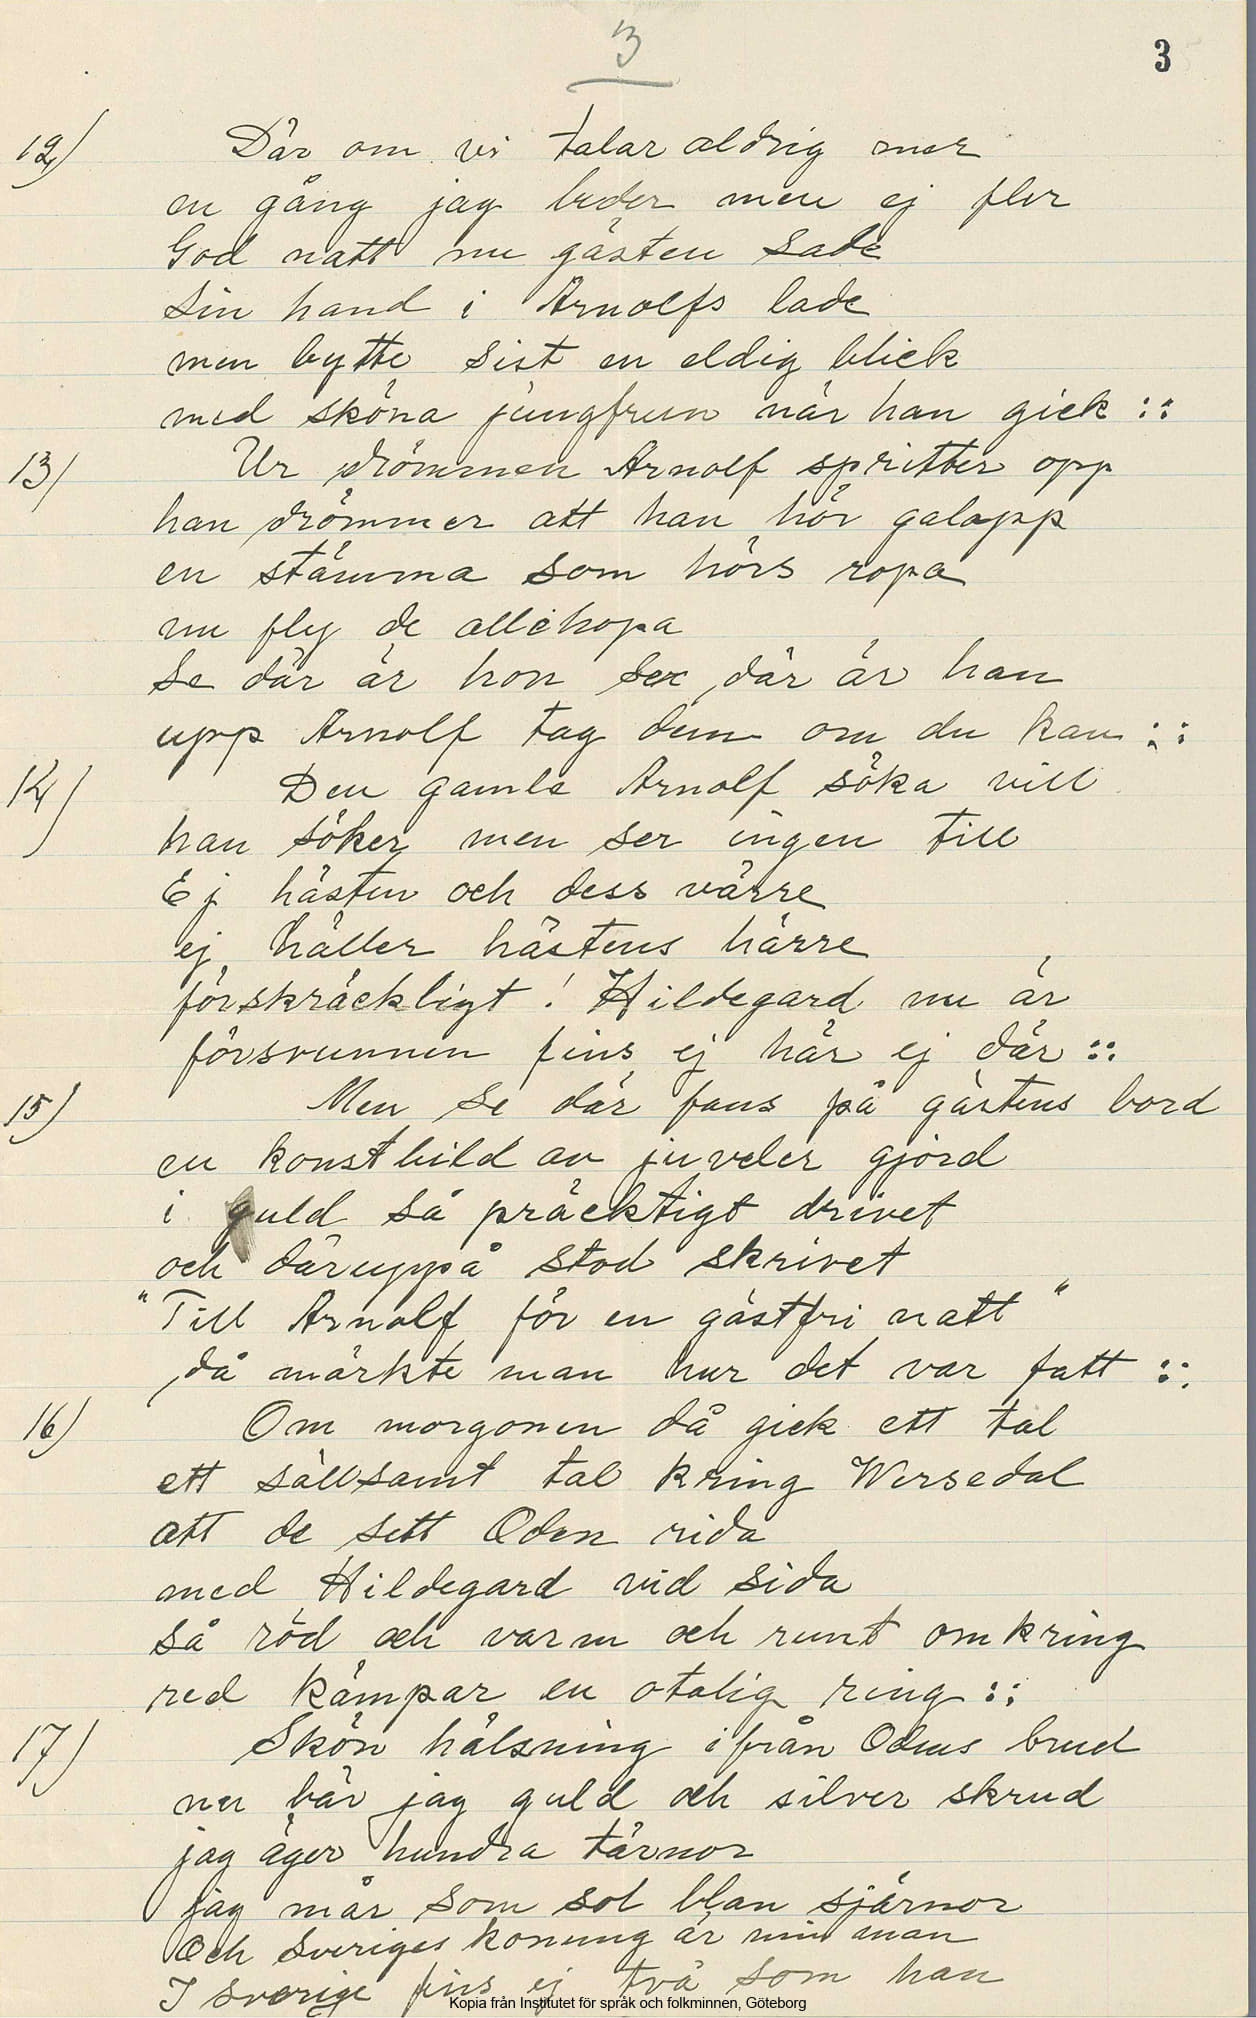 3
3
12) Där om vi talar aldrig mer
en gång jag beder men ej fler
God natt nu gästen sade
Sin hand i Arnolfs lade
men bytte sist en eldig blick
med sköna jungfrun när han gick ::
13) Ur drömmen Arnolf spritter opp
han drömmer att han hör galopp
en stämma som hörs ropa
nu fly de allihopa
Se där är hon se där är han
upp Arnolf tag dem om du kan ::
14) Den gamle Arnolf söka vill
han söker men ser ingen till
Ej hästen och dess värre
ej häller hästens härre
förskräckligt! Hildegard nu är
försvunnen fins ej här ej där ::
15) Men se där fans på gästens bord
en konstbild av juveler gjord
i guld så präcktigt drivet
och däruppå stod skrivet
"Till Arnolf för en gästfri natt"
då märkte man hur det var fatt ::
16) Om morgonen då gick ett tal
ett sällsamt tal kring Wersedal
att de sett Oden rida
med Hildegard vid sida
så röd och varm och runt omkring
red kämpar en otalig ring ::
17) Skön hälsning ifrån Odens brud
nu bär jag guld och silver skrud
jag äger hundra tärnor
jag mår som sol blan sjärnor
Och Sveriges konung är min man
I sverige fins ej två som han
Kopia från Institutet för språk och folkminnen, Göteborg